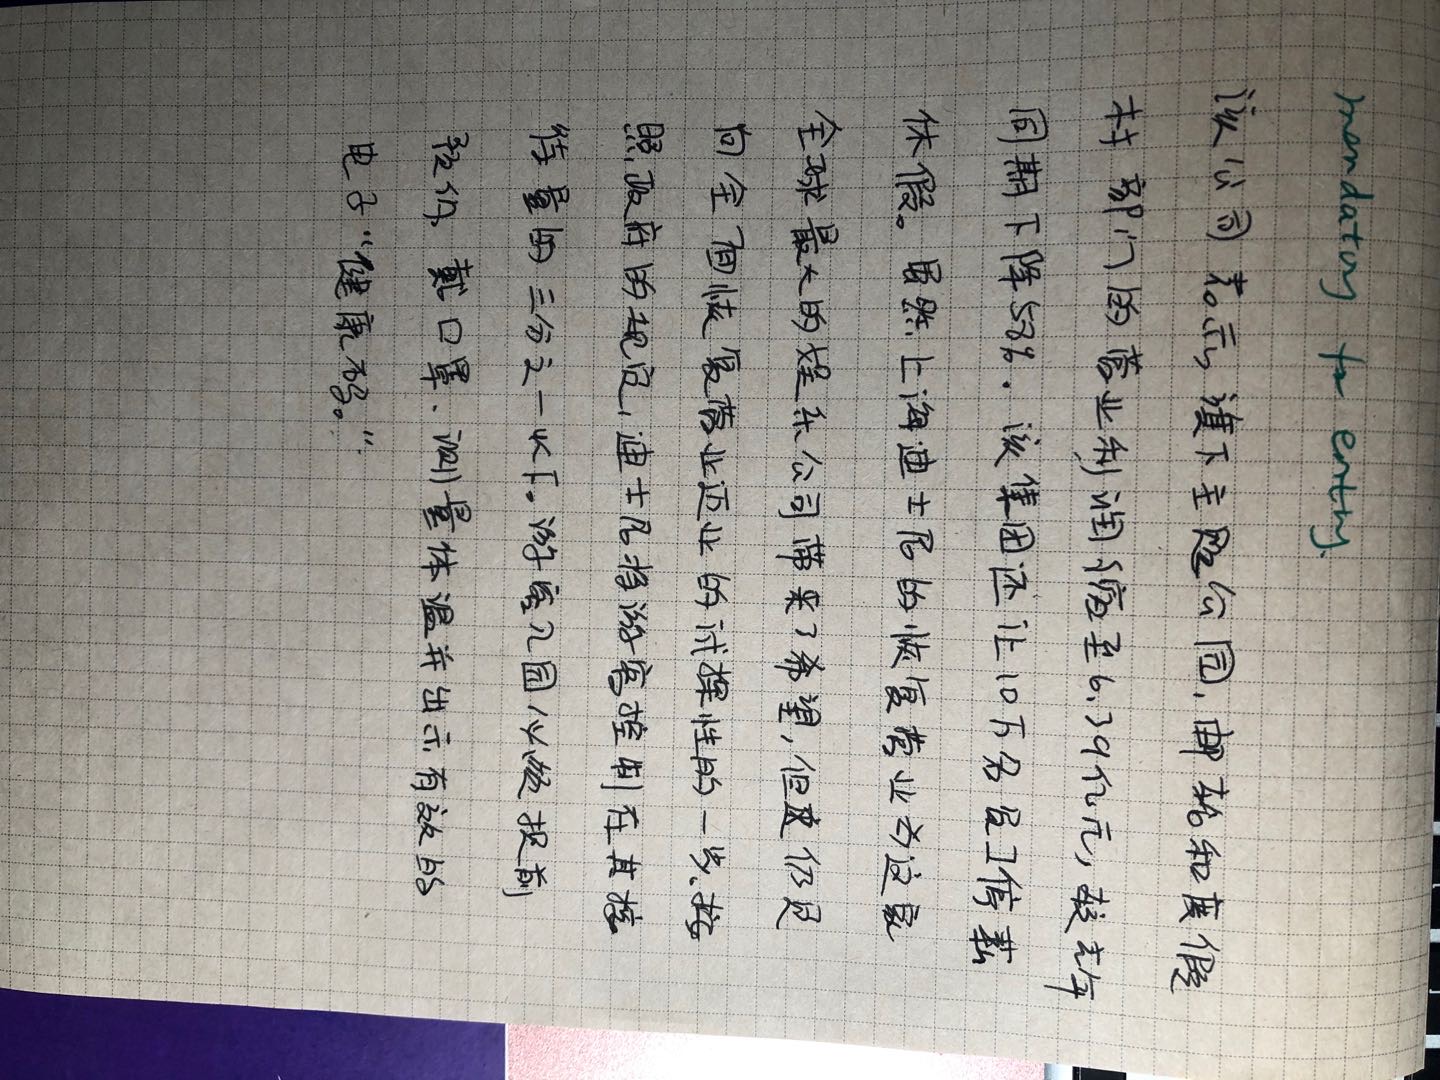 mandatory for entry.
该公司表示，旗下主题公园，邮轮和度假
村部门的营业利润缩至6.39亿元，较去年
同期下降58%. 该集团还让10万名员工停薪
休假。虽然上海迪士尼的恢复营业为这家
全球最大的娱乐公司带来了希望，但这仍只
向全面恢复营业迈出的试探性的一步.按
照政府的规定，迪士尼将游客控制在其核
待量的三分之一以下。游客入园必须提前
预约，戴口罩、测量体温并出示有效的
电子“健康码。”